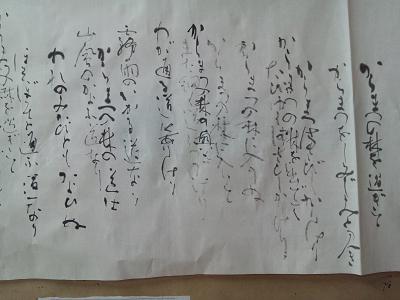 からまつの林を過ぎて
からまつをしみじみと見き
からまつはさびしかりけり
たびゆくはさびしかりけり
からまつの林を出でて
からまつの林に入りぬ
からまつの林に入りて
また細く道はつづけり
からまつの林の奥も
わが通る道はありけり
霧雨のかかる道なり
山風のかよふ道なり
からまつの林の道は
われのみかひともかよひぬ
ほそぼそと通ふ道なり
林を過ぎて